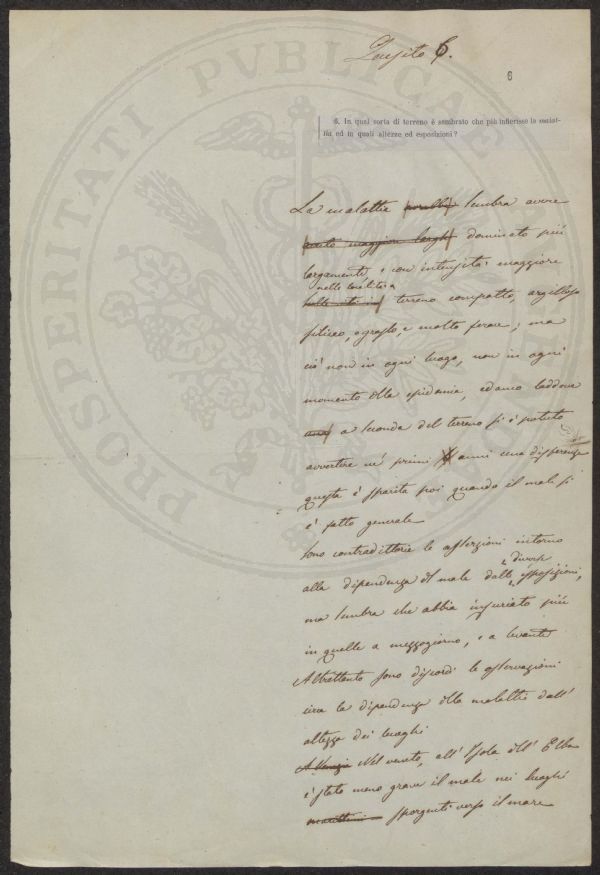 Quesito 6.
6
6. In qual sorta di terreno è sembrato che più infierisse la malattia, ed in quali altezze ed esposizioni?
PROSPERITATI PVBLICAE
La malattia sembra avere
dominato più
largamente, e con intensità maggiore
nelle località a
terreno compatto, argilloso
siliceo, o grasso, e molto ferace; ma
ciò non in ogni luogo, non in ogni
momento della epidemia, ed anco laddove
a seconda del terreno si è potuto
avvertire ne' primi anni una differenza
questa è sparita poi quando il male si
è fatto generale
Sono contradittorie le asserzioni intorno
alla dipendenza del male dalle diverse esposizioni,
ma sembra che abbia infuriato più
in quelle a mezzogiorno, e a levante
Altrettanto sono discordi le osservazioni
circa la dipendenza della malattia dall'
altezza dei luoghi
A Venezia Nel veneto, all'Isola dell'Elba
è stato meno grave il male nei luoghi
marittimi sporgenti verso il mare